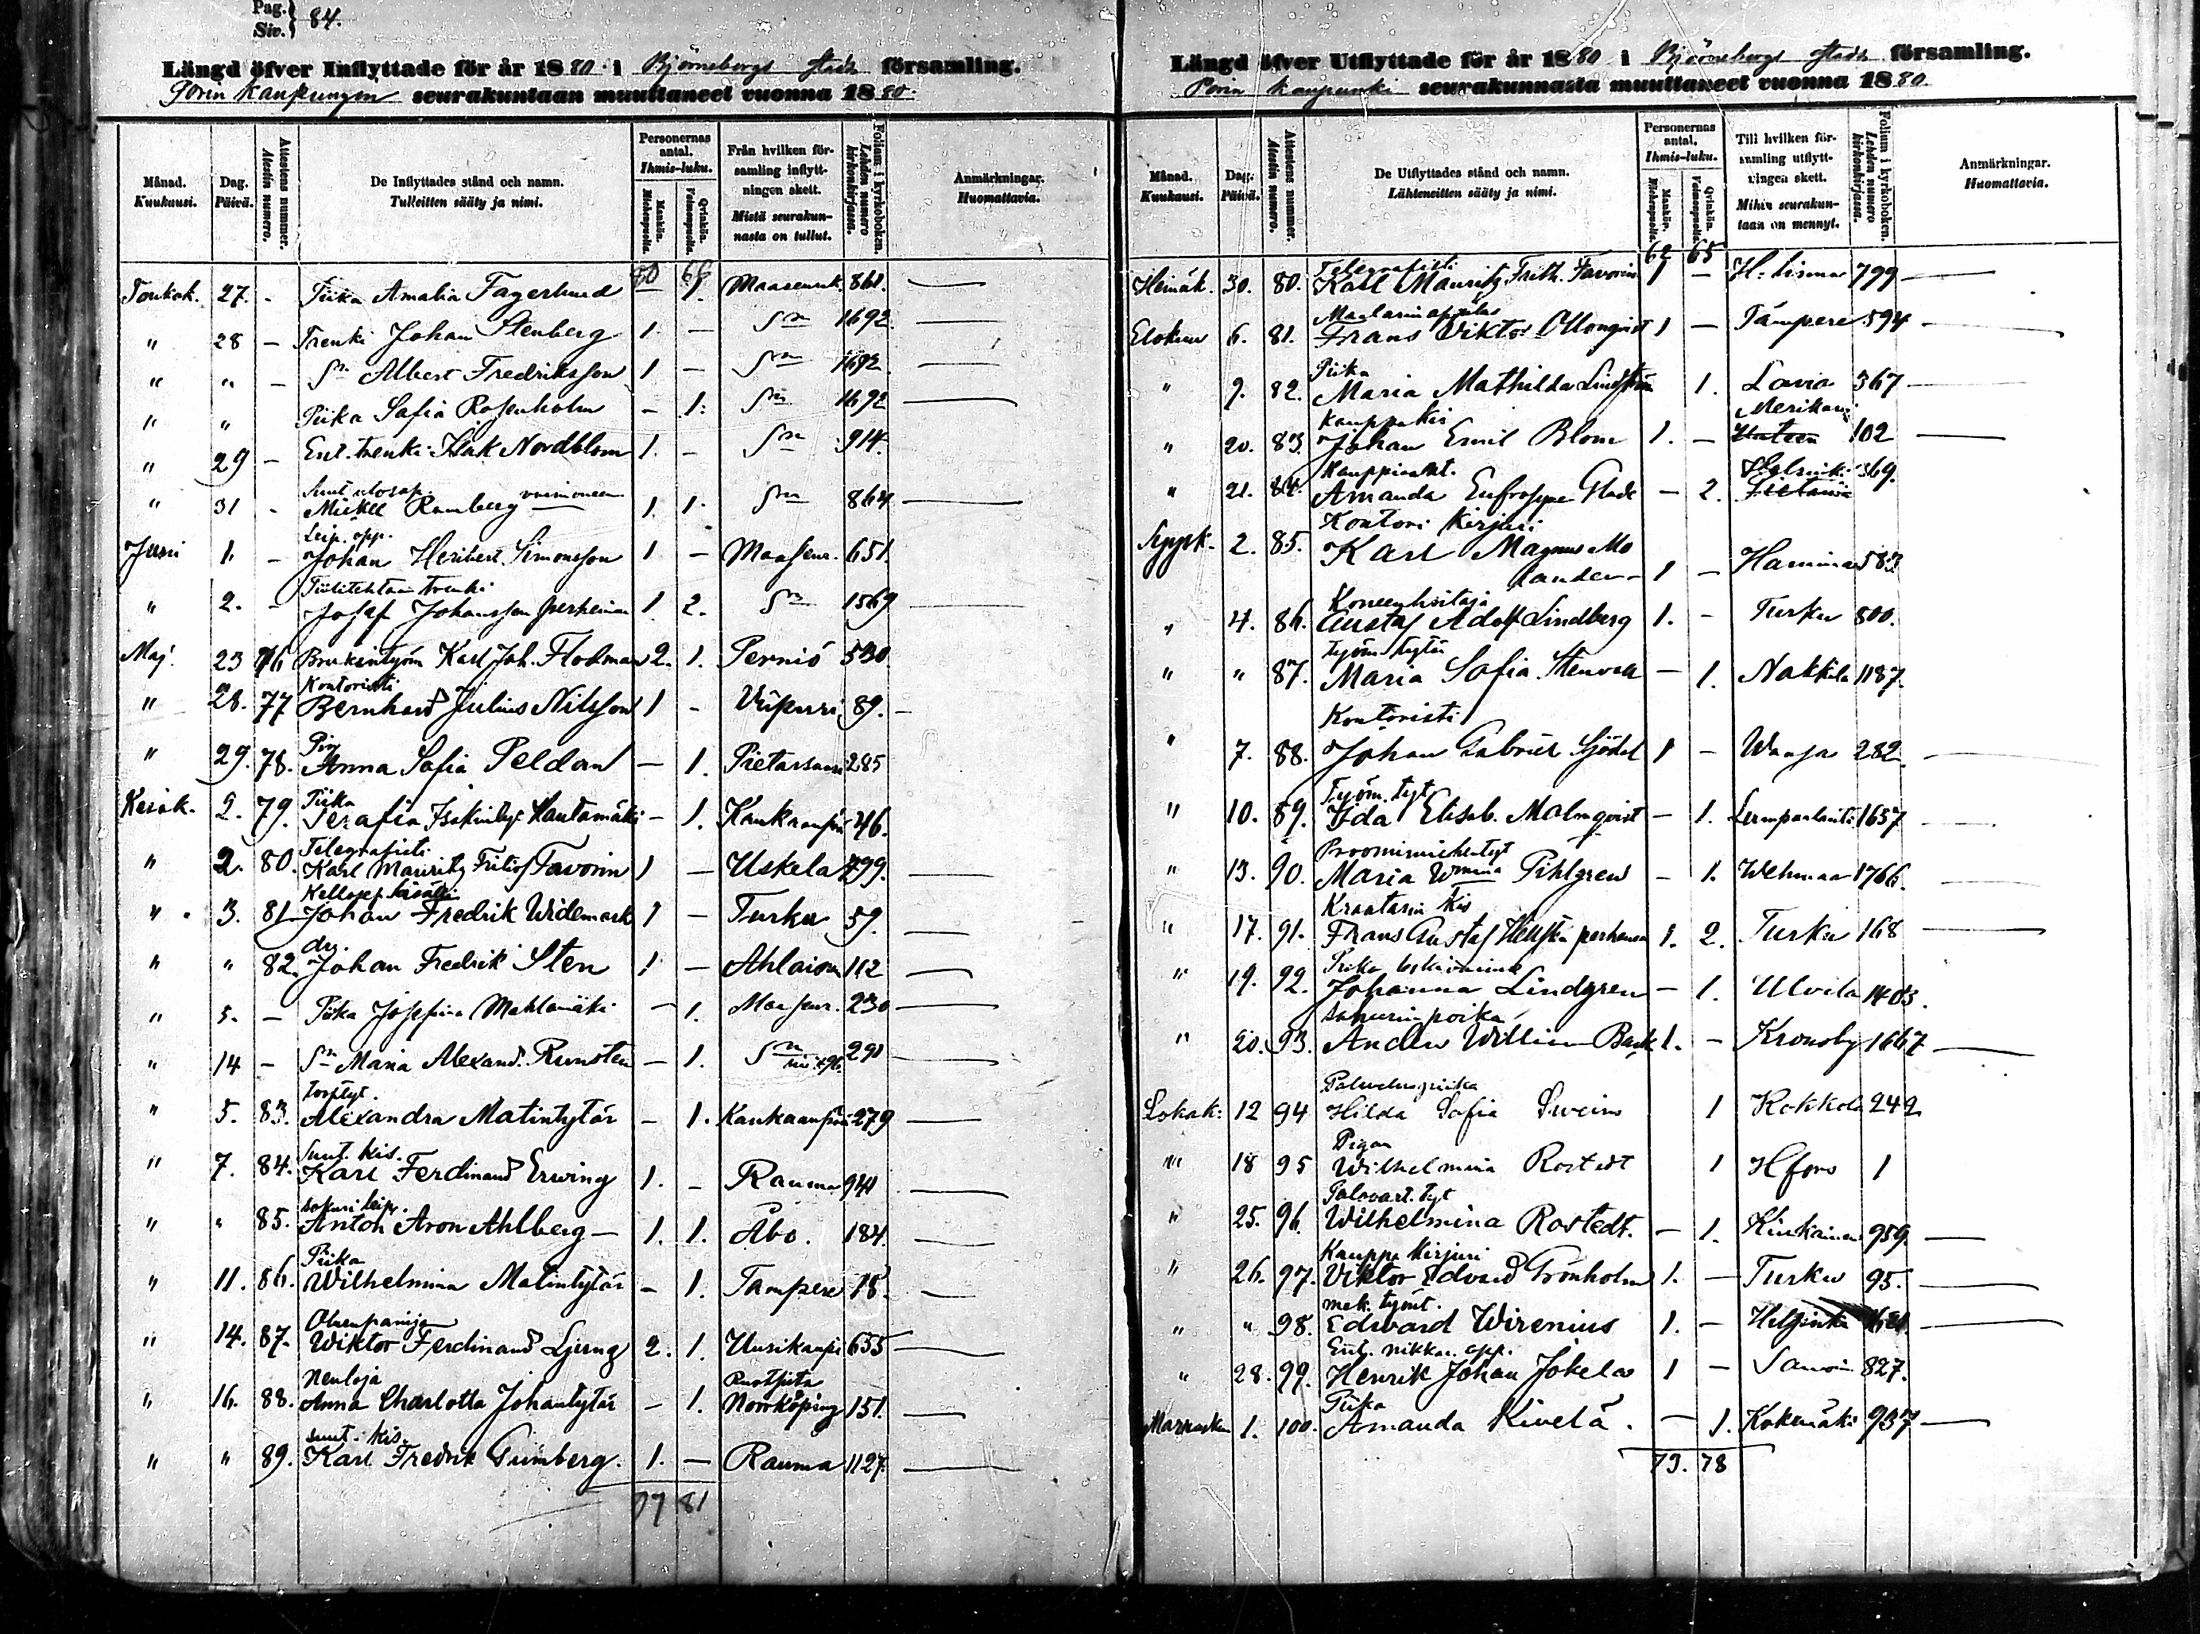 Pag. } 84.
Siv.
Längd öfver Inflyttade för år 1880 i Björneborgs stads församling.
Porin Kaupungin seurakuntaan muuttaneet vuonna 1880.
Månad. Kuukausi. Dag. Päivä. Attestens nummer. Atestin numero. De Inflyttades stånd och namn. Tulleitten sääty ja nimi. Personernas antal. Ihmis-luku. Mankön. Miehenpuolia. Qvinkön. Vaimonpuolia. Från hvilken församling inflyttningen skett. Mistä seurakunnasta on tullut. Folium i kyrkoboken. Lehden numero kirkonkirjassa. Anmärkningar. Huomattavia.
80 66
Toukok. 27. - Piika Amalia Fagerlund — 1. Maaseurak. 861. —
" 28 — Trenki Johan Stenberg 1. — Sn 1692. —
" " — Sn Albert Fredriksson 1 — Sn 1692. —
" " Piika Safia Rosenholm - 1. Sn 1692 —
" 29 — Ent. trenki Isak Nordblom 1. - Sn 914.
" 31 - Mickel Ramberg vaimoneen 1. 1. Sn 864 —
Leip. opp.
Juni 1. - Johan Heribert Simonsson 1 — Maaseur. 651.
Tiilitehtaan trenki
" 2. - Josef Johansson perheineen 1 2. Sn 1569 —
Maj 23 76 Karl Joh. Flodman 2. 1. Perniö 530
Kontoristi
" 28. 77 Bernhard Julius Nilsson 1 - Viipuri 89. —
" 29. 78. Anna Safia Peldan — 1. Pietarsaari 285
Piika
Kesäk. 2. 79. Serafia Iisakintyt. Hautamäki — 1. Kankaanpää 46.
Telegrafisti
" 2. 80. Karl Mauritz Fritiof Favorin 1 — Uskela 799. —
Kellosep. kisälli
" 3. 81 Johan Fredrik Widemark 1 — Turku 59. —
" " 82. Johan Fredrik Sten 1 — Ahlainen 112 —
" 5. — Piika Josefina Mahlamäki — 1. Maaseur. 230 —
" 14 — Sn Maria Alexand. Runsten — 1. Sn 291 —
" 5. 83. Alexandra Matintytär - 1. Kankaanpää 279 —
Suut. kis.
" 7. 84. Karl Ferdinand Erving 1. - Rauma 941 —
" " 85. Anton Aron Ahlberg — 1. 1. Åbo. 184. —
Piika
" 11. 86. Wilhelmina Matintytär - 1. Tampere 18. —
Oluenpanija
" 14. 87. Wiktor Ferdinand Ljung 2. 1. Uusikaupu 655 —
Neuloja Ruotsista
" 16. 88. Anna Charlotta Johantytär - 1. Norrköping 151. —
suut. kis.
" " 89. Karl Fredrik Grünberg. 1. — Rauma 1127. —
77 81
Längd öfver Utflyttade för år 1880 i Björneborgs stads församling.
Porin kaupunki seurakunnasta muuttaneet vuonna 1880.
Månad. Kuukausi. Dag. Päivä. Attestens nummer. Atestin numero. De Utflyttades stånd och namn. Lähteneitten sääty ja nimi. Personernas antal. Ihmis-luku. Mankön. Miehenpuolia. Qvinkön. Vaimonpuolia. Till hvilken församling utflyttningen skett. Mihin seurakuntaan on mennyt. Folium i kyrkoboken. Lehden numero kirkonkirjassa. Anmärkningar. Huomattavia.
62 65
Telegrafisti
Heinäk. 30. 80. Karl Mauritz Frith. Favorin 1 — 799 —
Maalarinoppilas
Elokuu 6. 81. Frans Viktor Ollonqvist 1 — Tampere 594 —
Piika
" 9. 82. Maria Mathilda Lindström 1. Lavia 367 —
Kauppakis Merikarvia
" 20. 83. Johan Emil Blom 1. — 102 —
" 21. 84. Amanda Eufrosyne Glade — 2. Helsinki 369.
Kontori Kirjuri
Syysk. 2. 85. Karl Magnus Molander — 1 — Hamina 583
Koneenhoitaja
" 4. 86. Gustaf Adolf Lindberg 1. - Turku 800.
Työm. tytär
" " 87. Maria Sofia Stenvall — 1. Nakkila 1187.
Kontoristi
" 7. 88. Johan Gabriel Sjödel 1 — Waasa 282. —
Työm. tyt
" 10. 89. Ida Elisab. Malmqvist — 1. Lempäälästä 1657 —
" 13. 90. Maria Wmina Pihlgren - 1. Wehmaa 1766. —
Kraatarin kis
" 17. 91. Frans Gustaf Hellsten perheineen 1. 2. Turku 168 —
Piika
" 19. 92. Johanna Lindgren — 1. Ulvila 1403.
" 20. 93. Anders William Back 1. — Kronoby 1667 —
Palveluspiika
Lokak. 12 94 Hilda Sofia 1 Kokkola 242
Pigan
" 18 95 Wilhelmina Rostedt 1 Hfors 1
" 25. 96. Wilhelmina Rostedt. — 1. Kiukainen 959. —
Kauppa Kirjuri
" 26. 97. Viktor Edvard Grönholm 1. — Turku 95. —
mek. työnt.
" " 98. Edvard Wirenius 1. — Helsinki —
nikkar. opp.
" 28. 99. Henrik Johan Jokela 1 — 827.
Piika
Marraskuu 1. 100. Amanda Kivelä. — 1. Kokemäki 937 —
73. 78